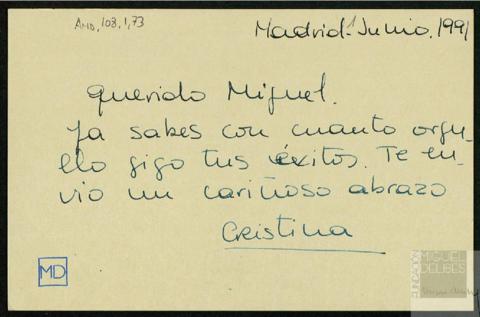 AMD, 108, 1, 73
Madrid 1 Junio, 1991
Querido Miguel.
Ya sabes con cuanto orgu-
llo sigo tus éxitos. Te en-
vio un cariñoso abrazo
Cristina
MD
FUNDACIÓN
MIGUEL
DELIBES